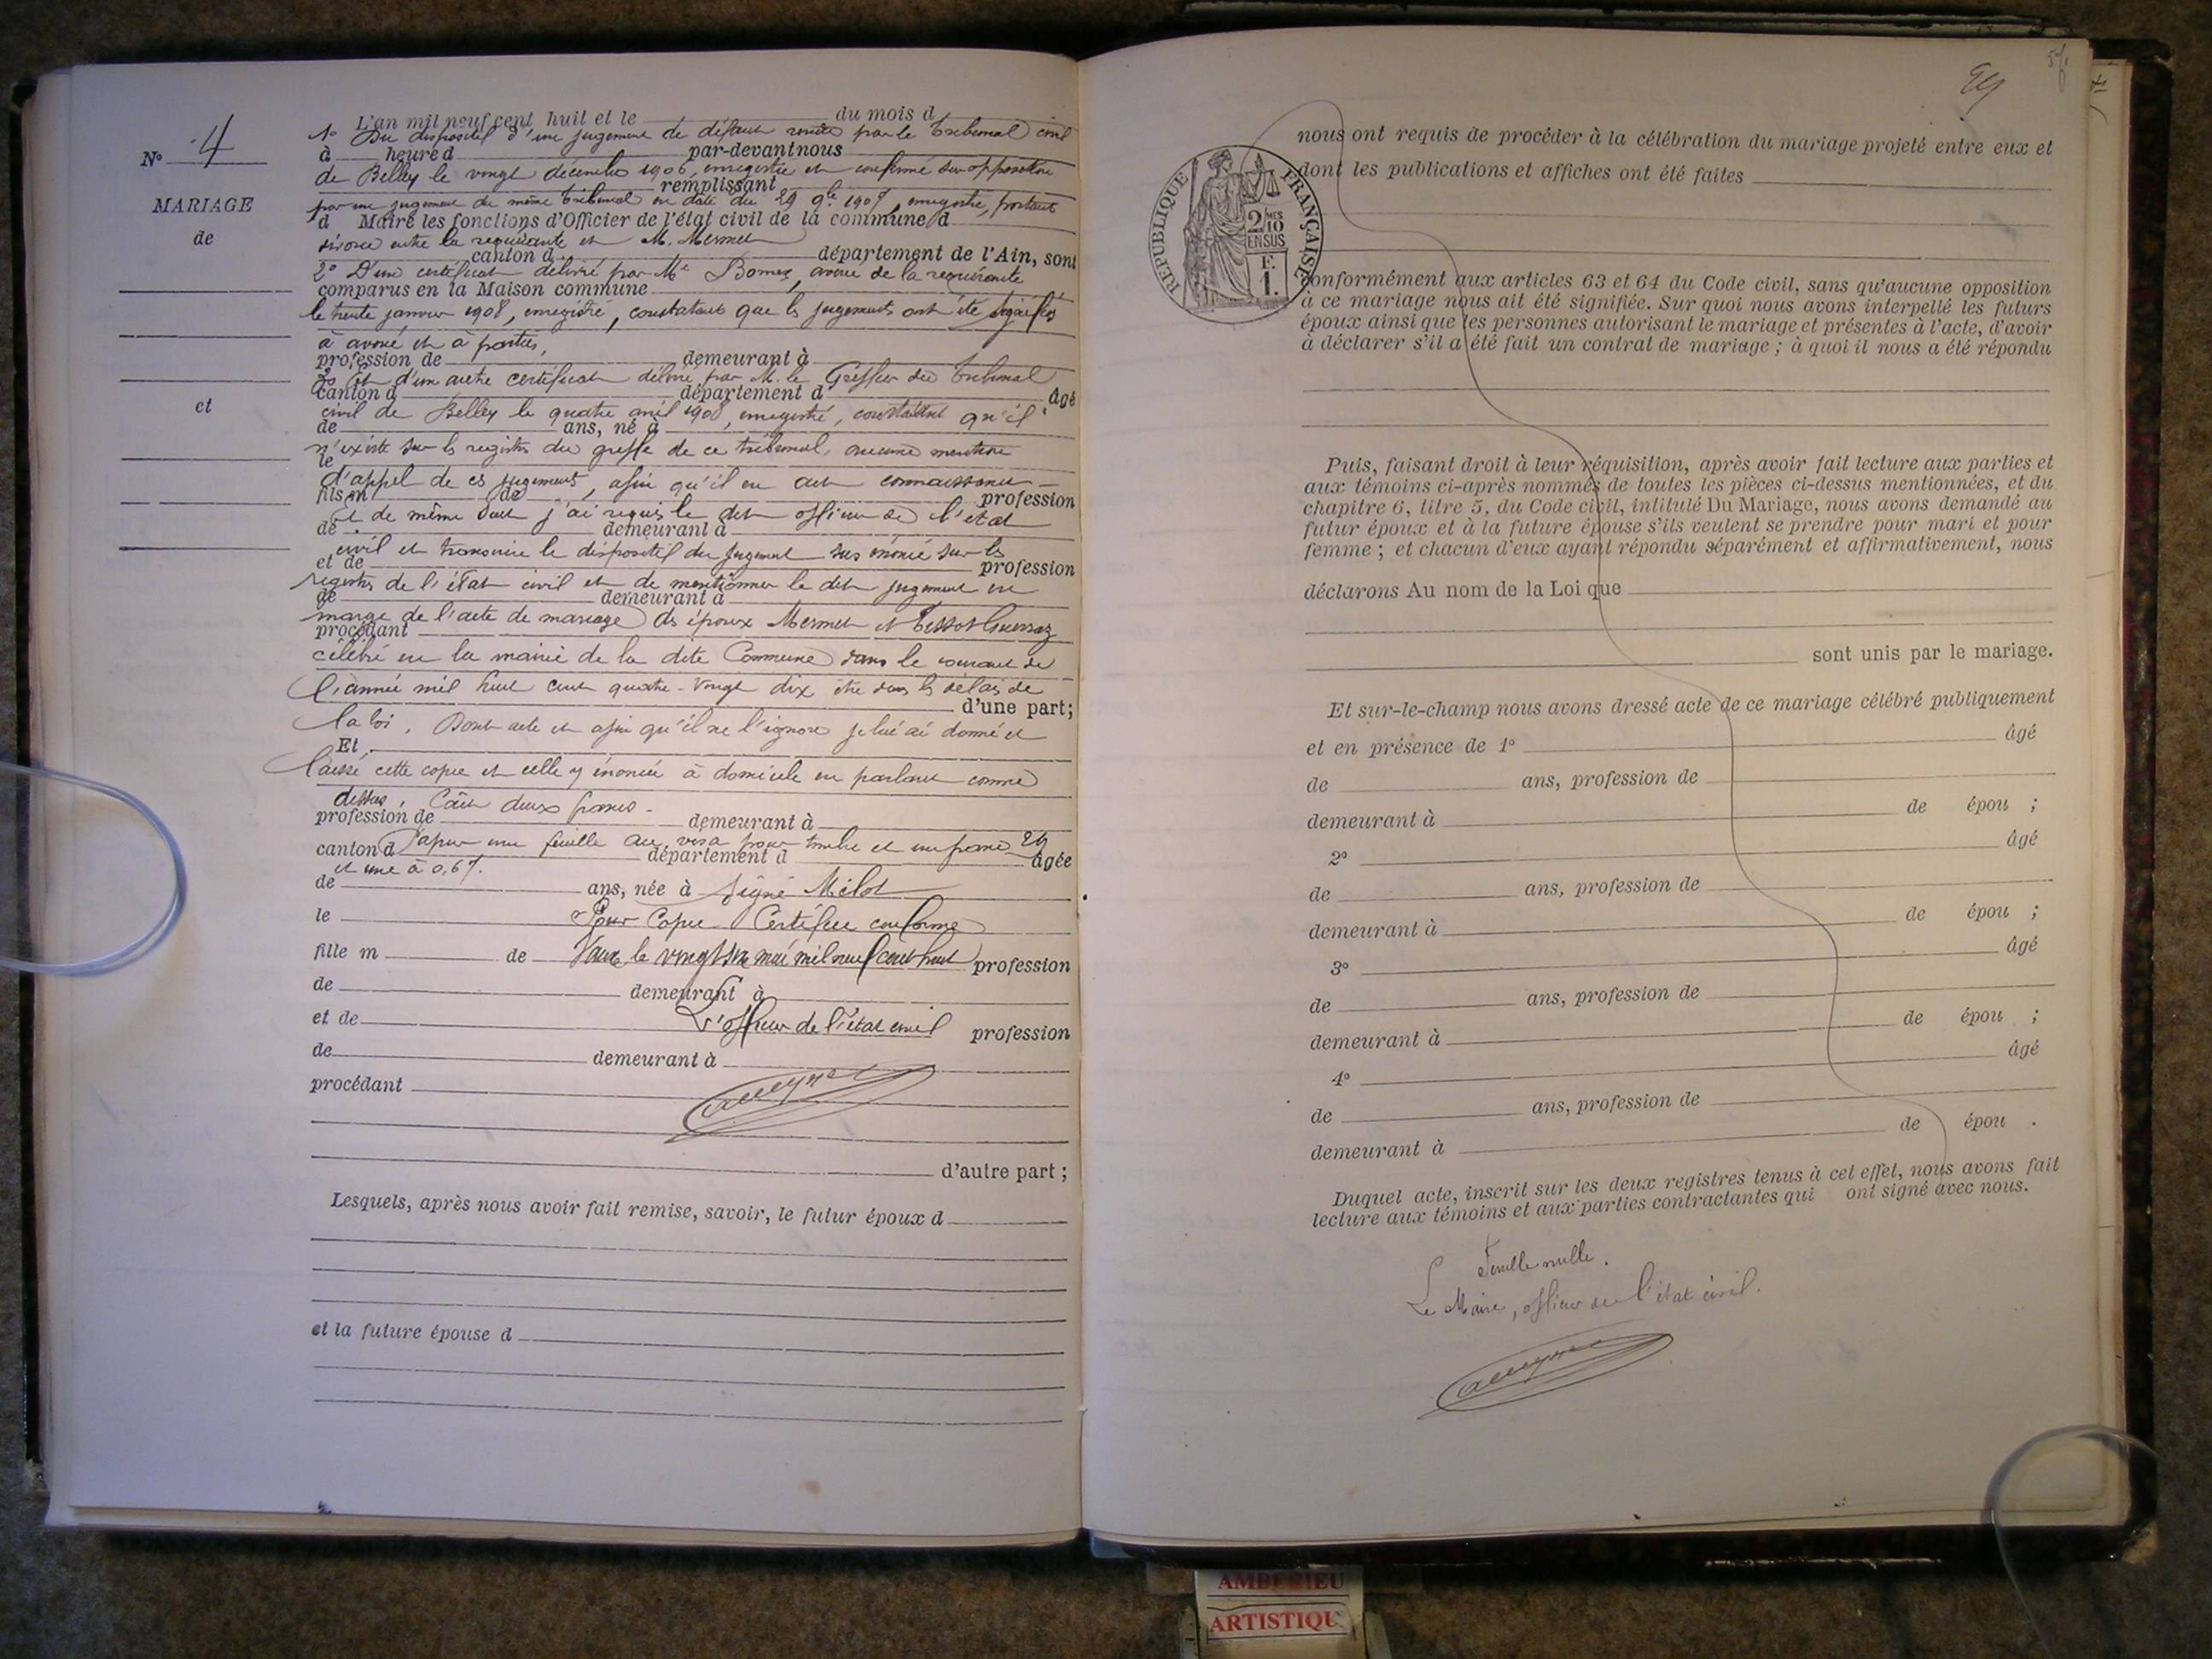 N° 4
MARIAGE
de
et
L'an mil neuf cent huit et le du mois d
1° Du dispositif d'un jugement de défaut rendu par le Tribunal civil
à heure d par-devant nous
de Belley le vingt décembre 1906, enregistré et confirmé sur opposition
remplissant
par un jugement du même Tribunal en date du 29 9bre 1907, enregistré, portant
d Maire les fonctions d'Officier de l'état civil de la commune d
divorce entre la requérante et M. Mermet
canton d département de l'Ain, sont
2° D'un certificat délivré par Me avoué de la requérante
comparus en la Maison commune
le trente janvier 1908, enregistré, constatant que les jugements ont été signifiés
à avoué et à parties,
profession de demeurant à
3° Et d'un autre certificat délivré par M. le Greffier du Tribunal
canton d département d âgé
civil de Belley le quatre avril 1908, enregistré, constatant qu'il
de ans, né à
n'existe sur les registres du greffe de ce tribunal, aucune mention
le
d'appel de ces jugements, afin qu'il en ait connaissance -
fils m de profession
Et de même suite j'ai requis le dit officier de l'état
de demeurant à
civil et transcrire le dispositif du jugement sus énoncé sur les
et de profession
registres de l'état civil et de mentionner le dit jugement en
de demeurant à
marge de l'acte de mariage des époux Mermet et
procédant
célébré en la mairie de la dite Commune dans le courant de
l'année mil huit cent quatre-vingt dix dans les délais de
d'une part;
la loi. Dont acte et afin qu'il ne l'ignore je lui ai donné et
Et
laissé cette copie et celle y énoncée à domicile en parlant comme
dessus. Coût deux francs -
profession de demeurant à
Papier une feuille au visa pour timbre et un franc 29
canton d département d âgée
et une à 0,67.
de ans, née à Signé Milot
le Pour Copie Certifiée conforme
fille m de Vaux le vingt six mai mil neuf cent huit profession
de demeurant à
et de L'officier de l'état civil profession
de demeurant à
procédant
d'autre part ;
Lesquels, après nous avoir fait remise, savoir, le futur époux d
et la future épouse d
59
REPUBLIQUE FRANÇAISE
2/10 MES
EN SUS
F.
1.
nous ont requis de procéder à la célébration du mariage projeté entre eux et
dont les publications et affiches ont été faites
conformément aux articles 63 et 64 du Code civil, sans qu'aucune opposition
à ce mariage nous ait été signifiée. Sur quoi nous avons interpellé les futurs
époux ainsi que les personnes autorisant le mariage et présentes à l'acte, d'avoir
à déclarer s'il a été fait un contrat de mariage ; à quoi il nous a été répondu
Puis, faisant droit à leur réquisition, après avoir fait lecture aux parties et
aux témoins ci-après nommés de toutes les pièces ci-dessus mentionnées, et du
chapitre 6, titre 5, du Code civil, intitulé Du Mariage, nous avons demandé au
futur époux et à la future épouse s'ils veulent se prendre pour mari et pour
femme ; et chacun d'eux ayant répondu séparément et affirmativement, nous
déclarons Au nom de la Loi que
sont unis par le mariage.
Et sur-le-champ nous avons dressé acte de ce mariage célébré publiquement
et en présence de 1° âgé
de ans, profession de
demeurant à de épou ;
2° âgé
de ans, profession de
demeurant à de épou ;
3° âgé
de ans, profession de
demeurant à de épou ;
4° âgé
de ans, profession de
demeurant à de épou .
Duquel acte, inscrit sur les deux registres tenus à cet effet, nous avons fait
lecture aux témoins et aux parties contractantes qui ont signé avec nous.
Feuille nulle.
Le Maire, officier de l'état civil.
AMBERIEU
ARTISTIQU